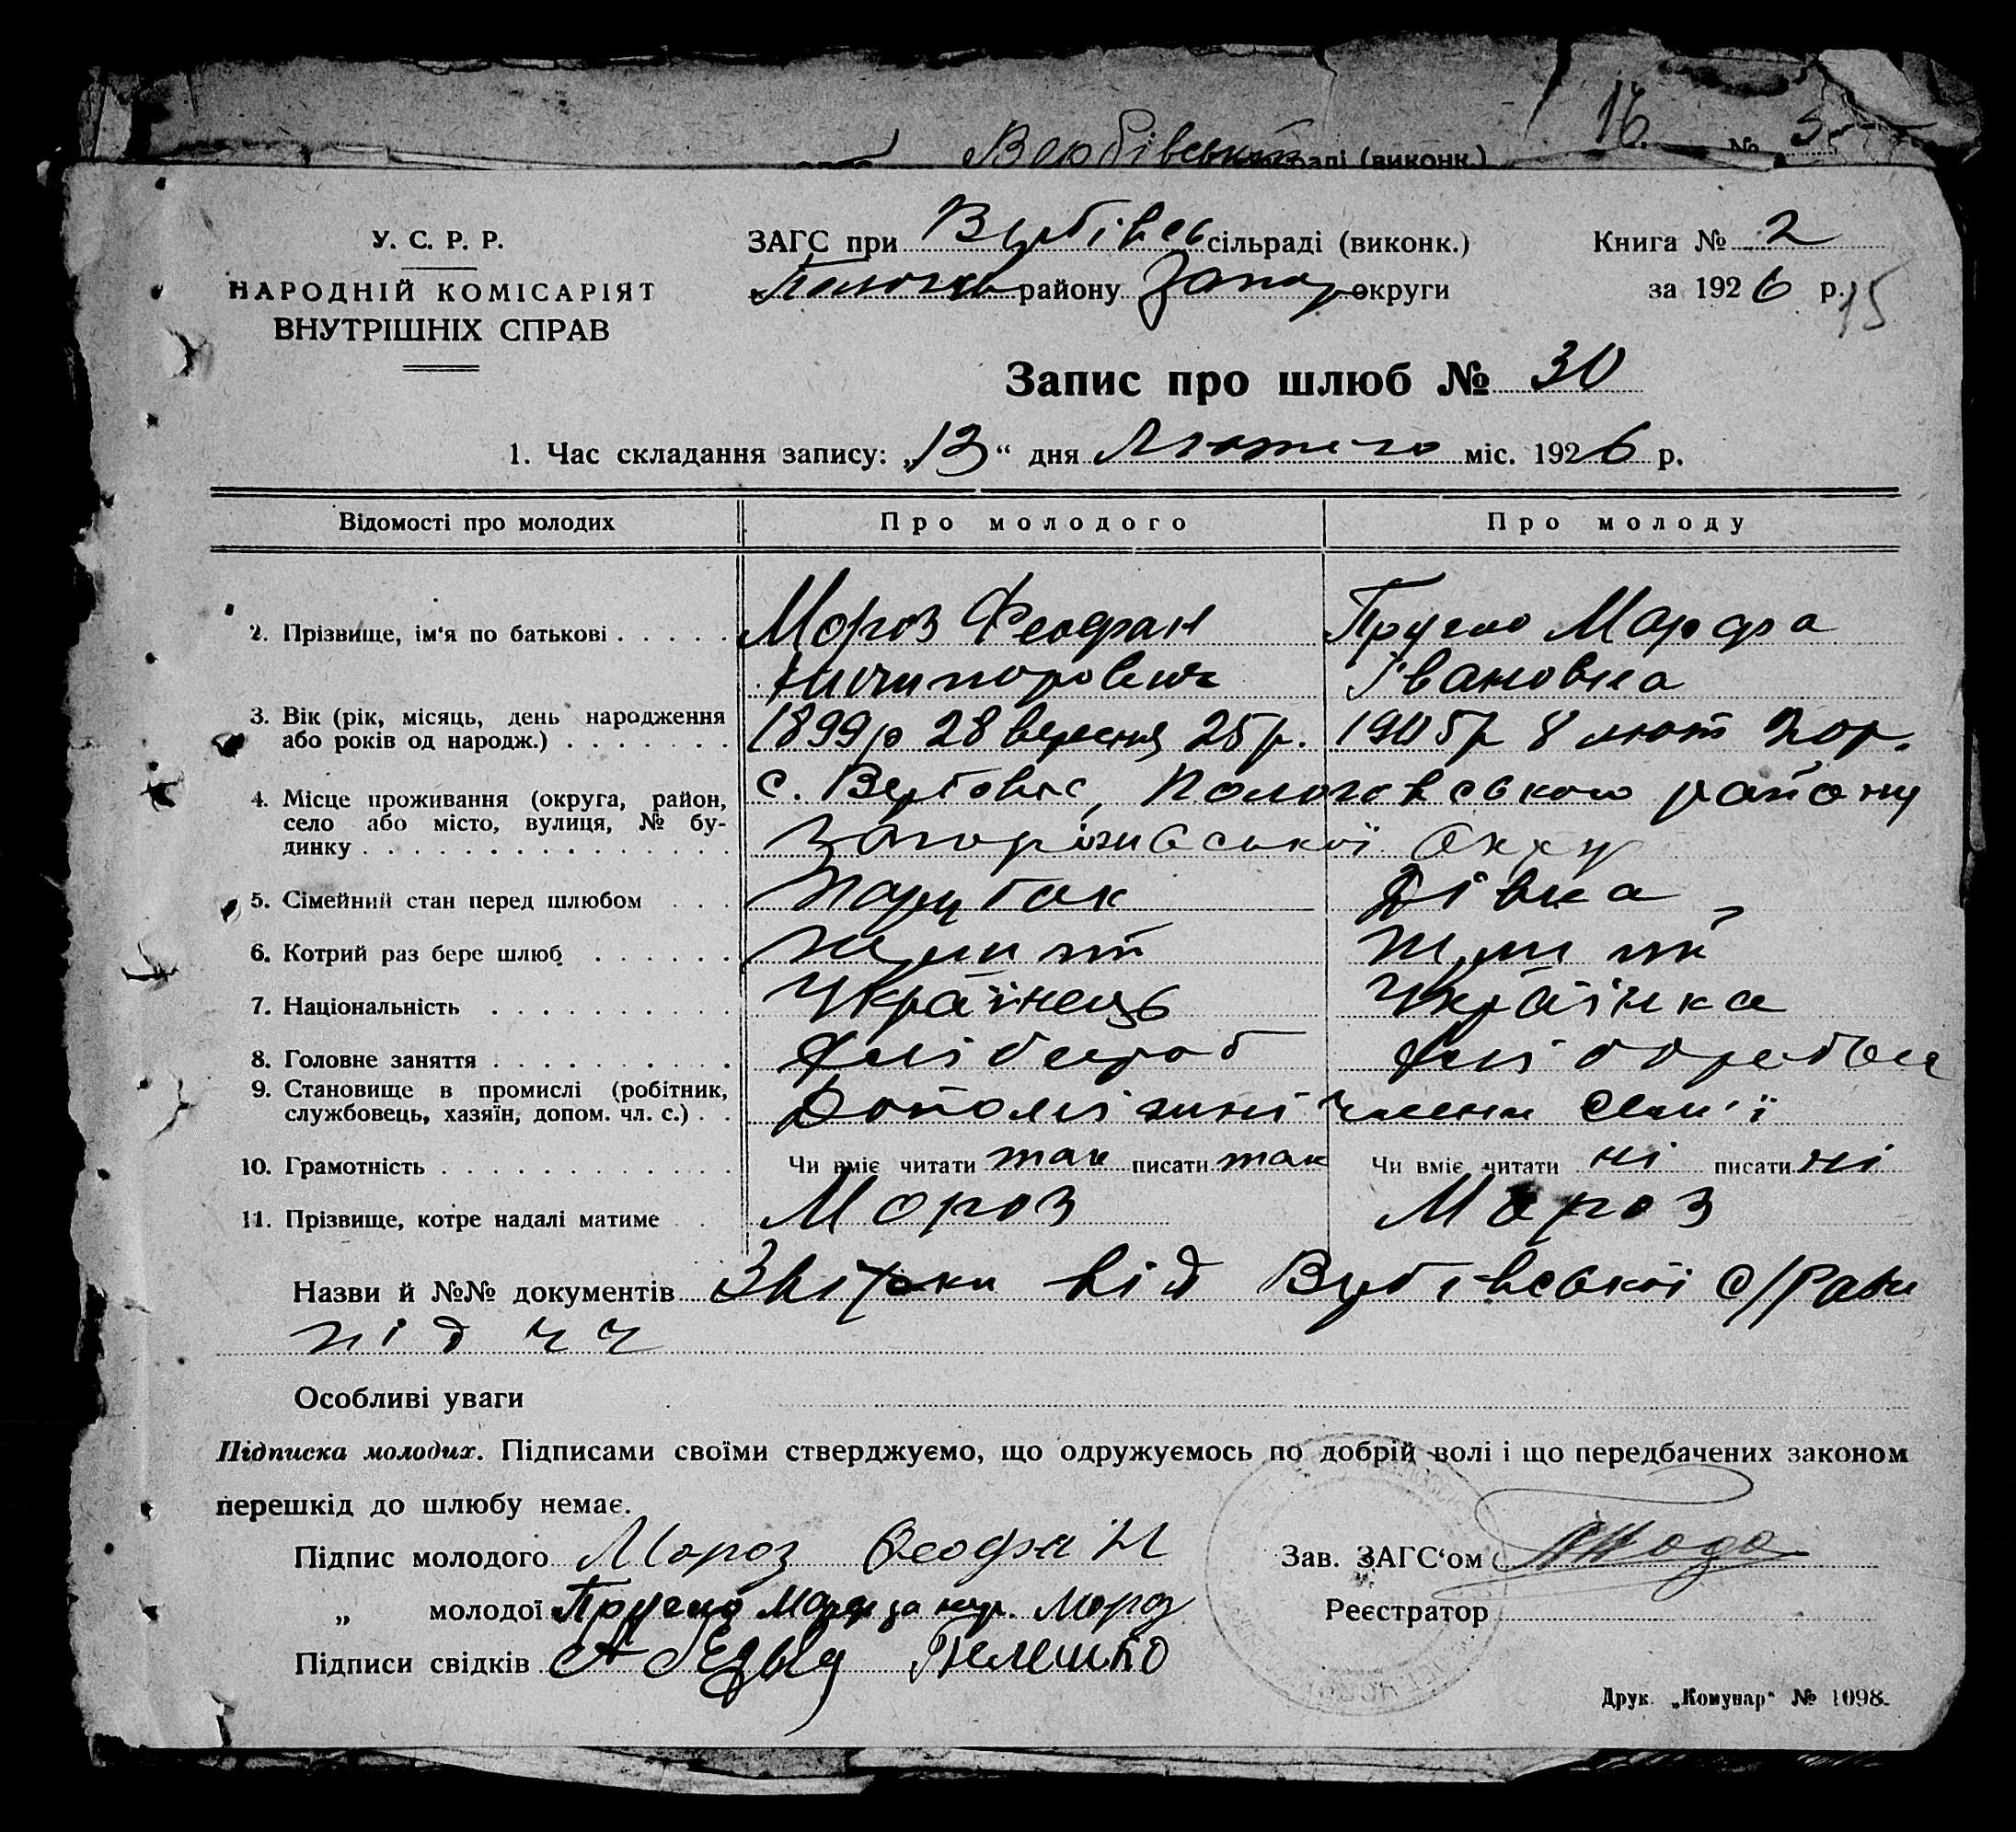 Вербівській раді (виконк.) 16. № 5
У. С. Р. Р.
НАРОДНІЙ КОМІСАРІЯТ
ВНУТРІШНІХ СПРАВ
ЗАГС при Вербівсь сільраді (виконк.) Книга № 2
району Запор округи за 1926 р. 15
Запис про шлюб № 30
1. Час складання запису: „13“ дня Лютого міс. 1926 р.
Відомості про молодих Про молодого Про молоду
2. Прізвище, ім'я по батькові Мороз Феофан Марфа
Ничипорович Івановна
3. Вік (рік, місяць, день народження
або років од народж.) 1899р 28 вересня 25р. 1905р 8 лют 20р.
4. Місце проживання (округа, район,
село або місто, вулиця, № бу-
динку с. Пологовського району
Запоріжської Окру
5. Сімейний стан перед шлюбом Парубак Дівка
6. Котрий раз бере шлюб
7. Національність Українець Українка
8. Головне заняття Хлібороб
9. Становище в промислі (робітник,
службовець, хазяїн, допом. чл. с.) члени сем'ї
10. Грамотність Чи вміє читати так писати так Чи вміє читати ні писати ні
11. Прізвище, котре надалі матиме Мороз Мороз
Назви й №№ документів від Вербівської с/Ради
під чч
Особливі уваги
Підписка молодих. Підписами своїми стверджуємо, що одружуємось по добрій волі і що передбачених законом
перешкід до шлюбу немає.
Підпис молодого Мороз Феофан Зав. ЗАГС'ом
„ молодої Мороз Реєстратор
Підписи свідків
Друк. „Комунар“ № 1098.